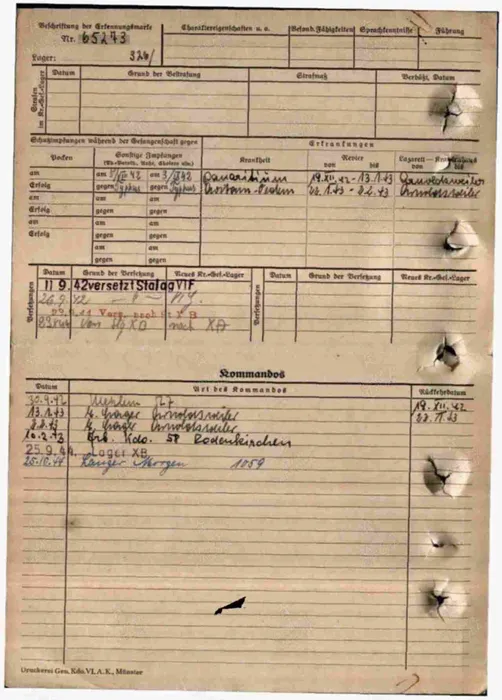 Beschriftung der Erkennungsmarke
Nr. 65273
Lager: 326/
Charaktereigenschaften u. a.
Besond. Fähigkeiten
Sprachkenntnisse
Führung
Strafen im Kr.-Gef.-Lager
Datum
Grund der Bestrafung
Strafmaß
Verbüßt, Datum
Schutzimpfungen während der Gefangenschaft gegen
Erkrankungen
Pocken
Sonstige Impfungen
Krankheit
Revier
von bis
Lazarett — Krankenhaus
von bis
am am 42 am 42
Panaritium 19.XII.42 - 13.1.43 Arnoldsweiler
Erfolg gegen Typhus gegen Typhus
22.1.43 - 2.2.43 Arnoldsweiler
am am am
Erfolg gegen gegen
am am am
Erfolg gegen gegen
am am
gegen gegen
Versetzungen
Datum
Grund der Versetzung
Neues Kr.-Gef.-Lager
Versetzungen
Datum
Grund der Versetzung
Neues Kr.-Gef.-Lager
11 9.42 versetzt Stalag VI F
26.9.42 VI G.
X B
von VI G XB nach XB
Kommandos
Datum
Art des Kommandos
Rückkehrdatum
30.9.42 Mehlem 19.XII.42
13.1.43 Lager Arnoldsweiler 22.1.43
2.2.43 Lager Arnoldsweiler
10.2.43 Arb. Kdo. Rodenkirchen
25.9.44. Lager XB
25.10.44 Langer Morgen 1059
Druckerei Gen. Kdo. VI. A. K., Münster